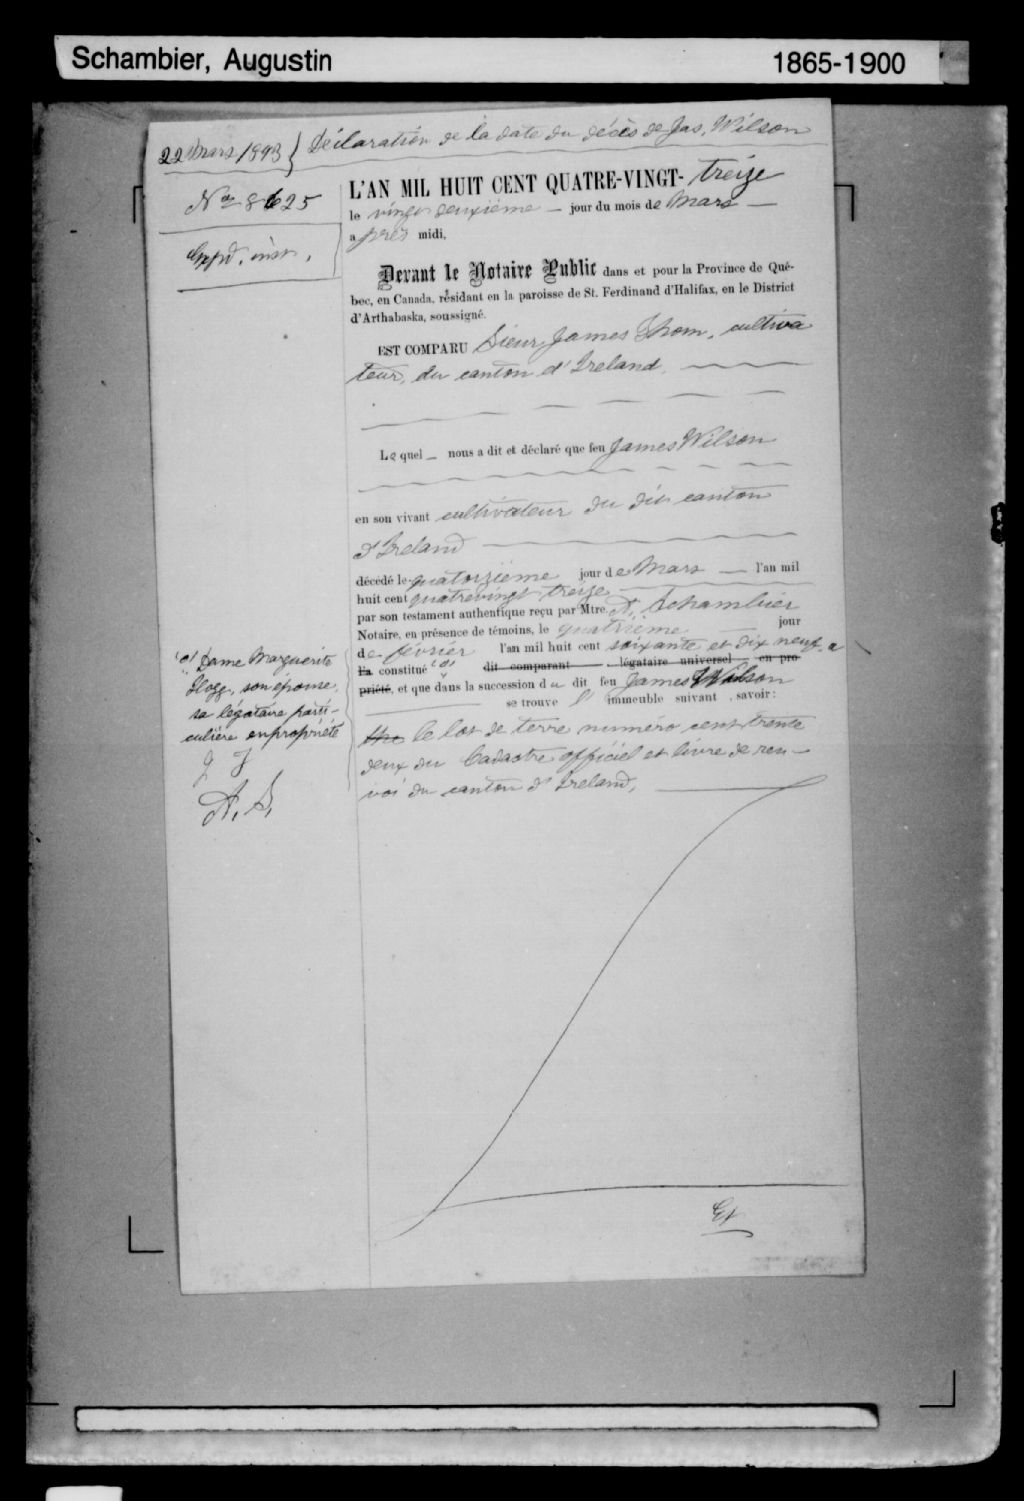 Schambier, Augustin 1865-1900
22 Mars 1893 } Déclaration de la date du décès de Jas. Wilson
No 8625
Expd. inst.
L'AN MIL HUIT CENT QUATRE-VINGT- treize
le vingt deuxième — jour du mois de Mars —
après midi,
Devant le Notaire Public dans et pour la Province de Qué-
bec, en Canada, résidant en la paroisse de St. Ferdinand d'Halifax, en le District
d'Arthabaska, soussigné.
EST COMPARU Sieur James Thom, cultiva
teur, du canton d'Ireland.
Lequel — nous a dit et déclaré que feu James Wilson
en son vivant cultivateur du dit canton
d'Ireland
décédé le quatorzième jour de Mars — l'an mil
huit cent quatrevingt treize
par son testament authentique reçu par Mtre A. Schambier
Notaire, en présence de témoins, le quatrième — jour
de février l'an mil huit cent soixante et dix neuf, a
l'a constitué "o" dit comparant légataire universel en pro-
priété, et que dans la succession du dit feu James Wilson
se trouve l' immeuble suivant savoir:
le lot de terre numéro cent trente
deux du Cadastre officiel et livre de ren-
voi du canton d'Ireland,
"o" Dame Marguerite
Hogg, son épouse,
sa légataire parti-
culière en propriété
J T
A. S.
Et